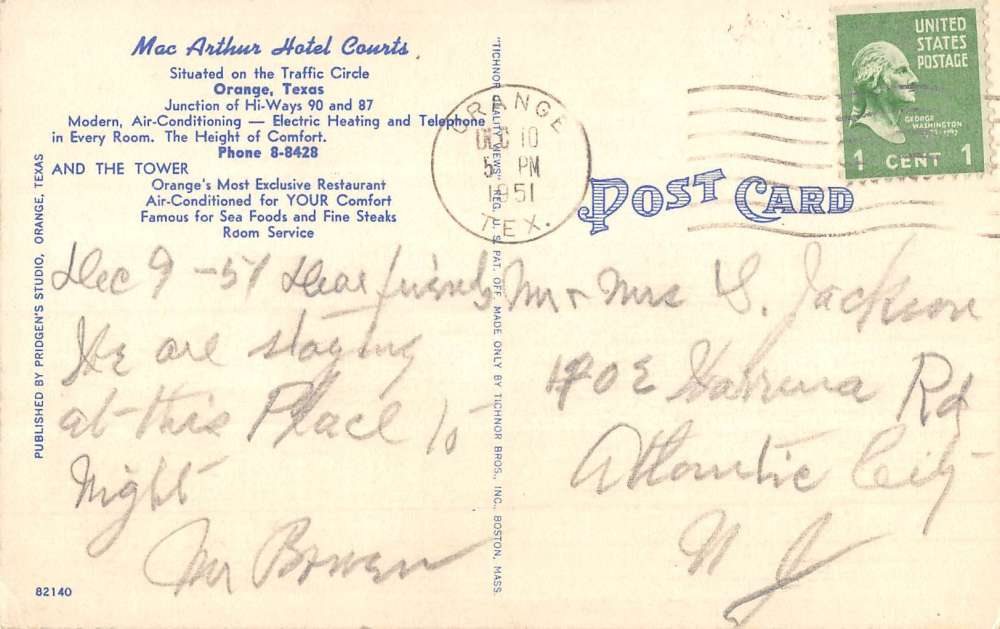 Mac Arthur Hotel Courts
Situated on the Traffic Circle
Orange, Texas
Junction of Hi-Ways 90 and 87
Modern, Air-Conditioning — Electric Heating and Telephone
in Every Room. The Height of Comfort.
Phone 8-8428
AND THE TOWER
Orange's Most Exclusive Restaurant
Air-Conditioned for YOUR Comfort
Famous for Sea Foods and Fine Steaks
Room Service
PUBLISHED BY PRIDGEN'S STUDIO, ORANGE, TEXAS
Dec 9 - 51 Dear friends
We are staying
at this Place to
Night
Mr Bowen
82140
"TICHNOR QUALITY VIEWS" REG. U. S. PAT. OFF. MADE ONLY BY TICHNOR BROS., INC., BOSTON, MASS.
ORANGE
DEC 10
5 PM
1951
TEX.
UNITED
STATES
POSTAGE
GEORGE
WASHINGTON
1 CENT 1
POST CARD
Mr + Mrs S. Jackson
Rd
Atlantic City
N J